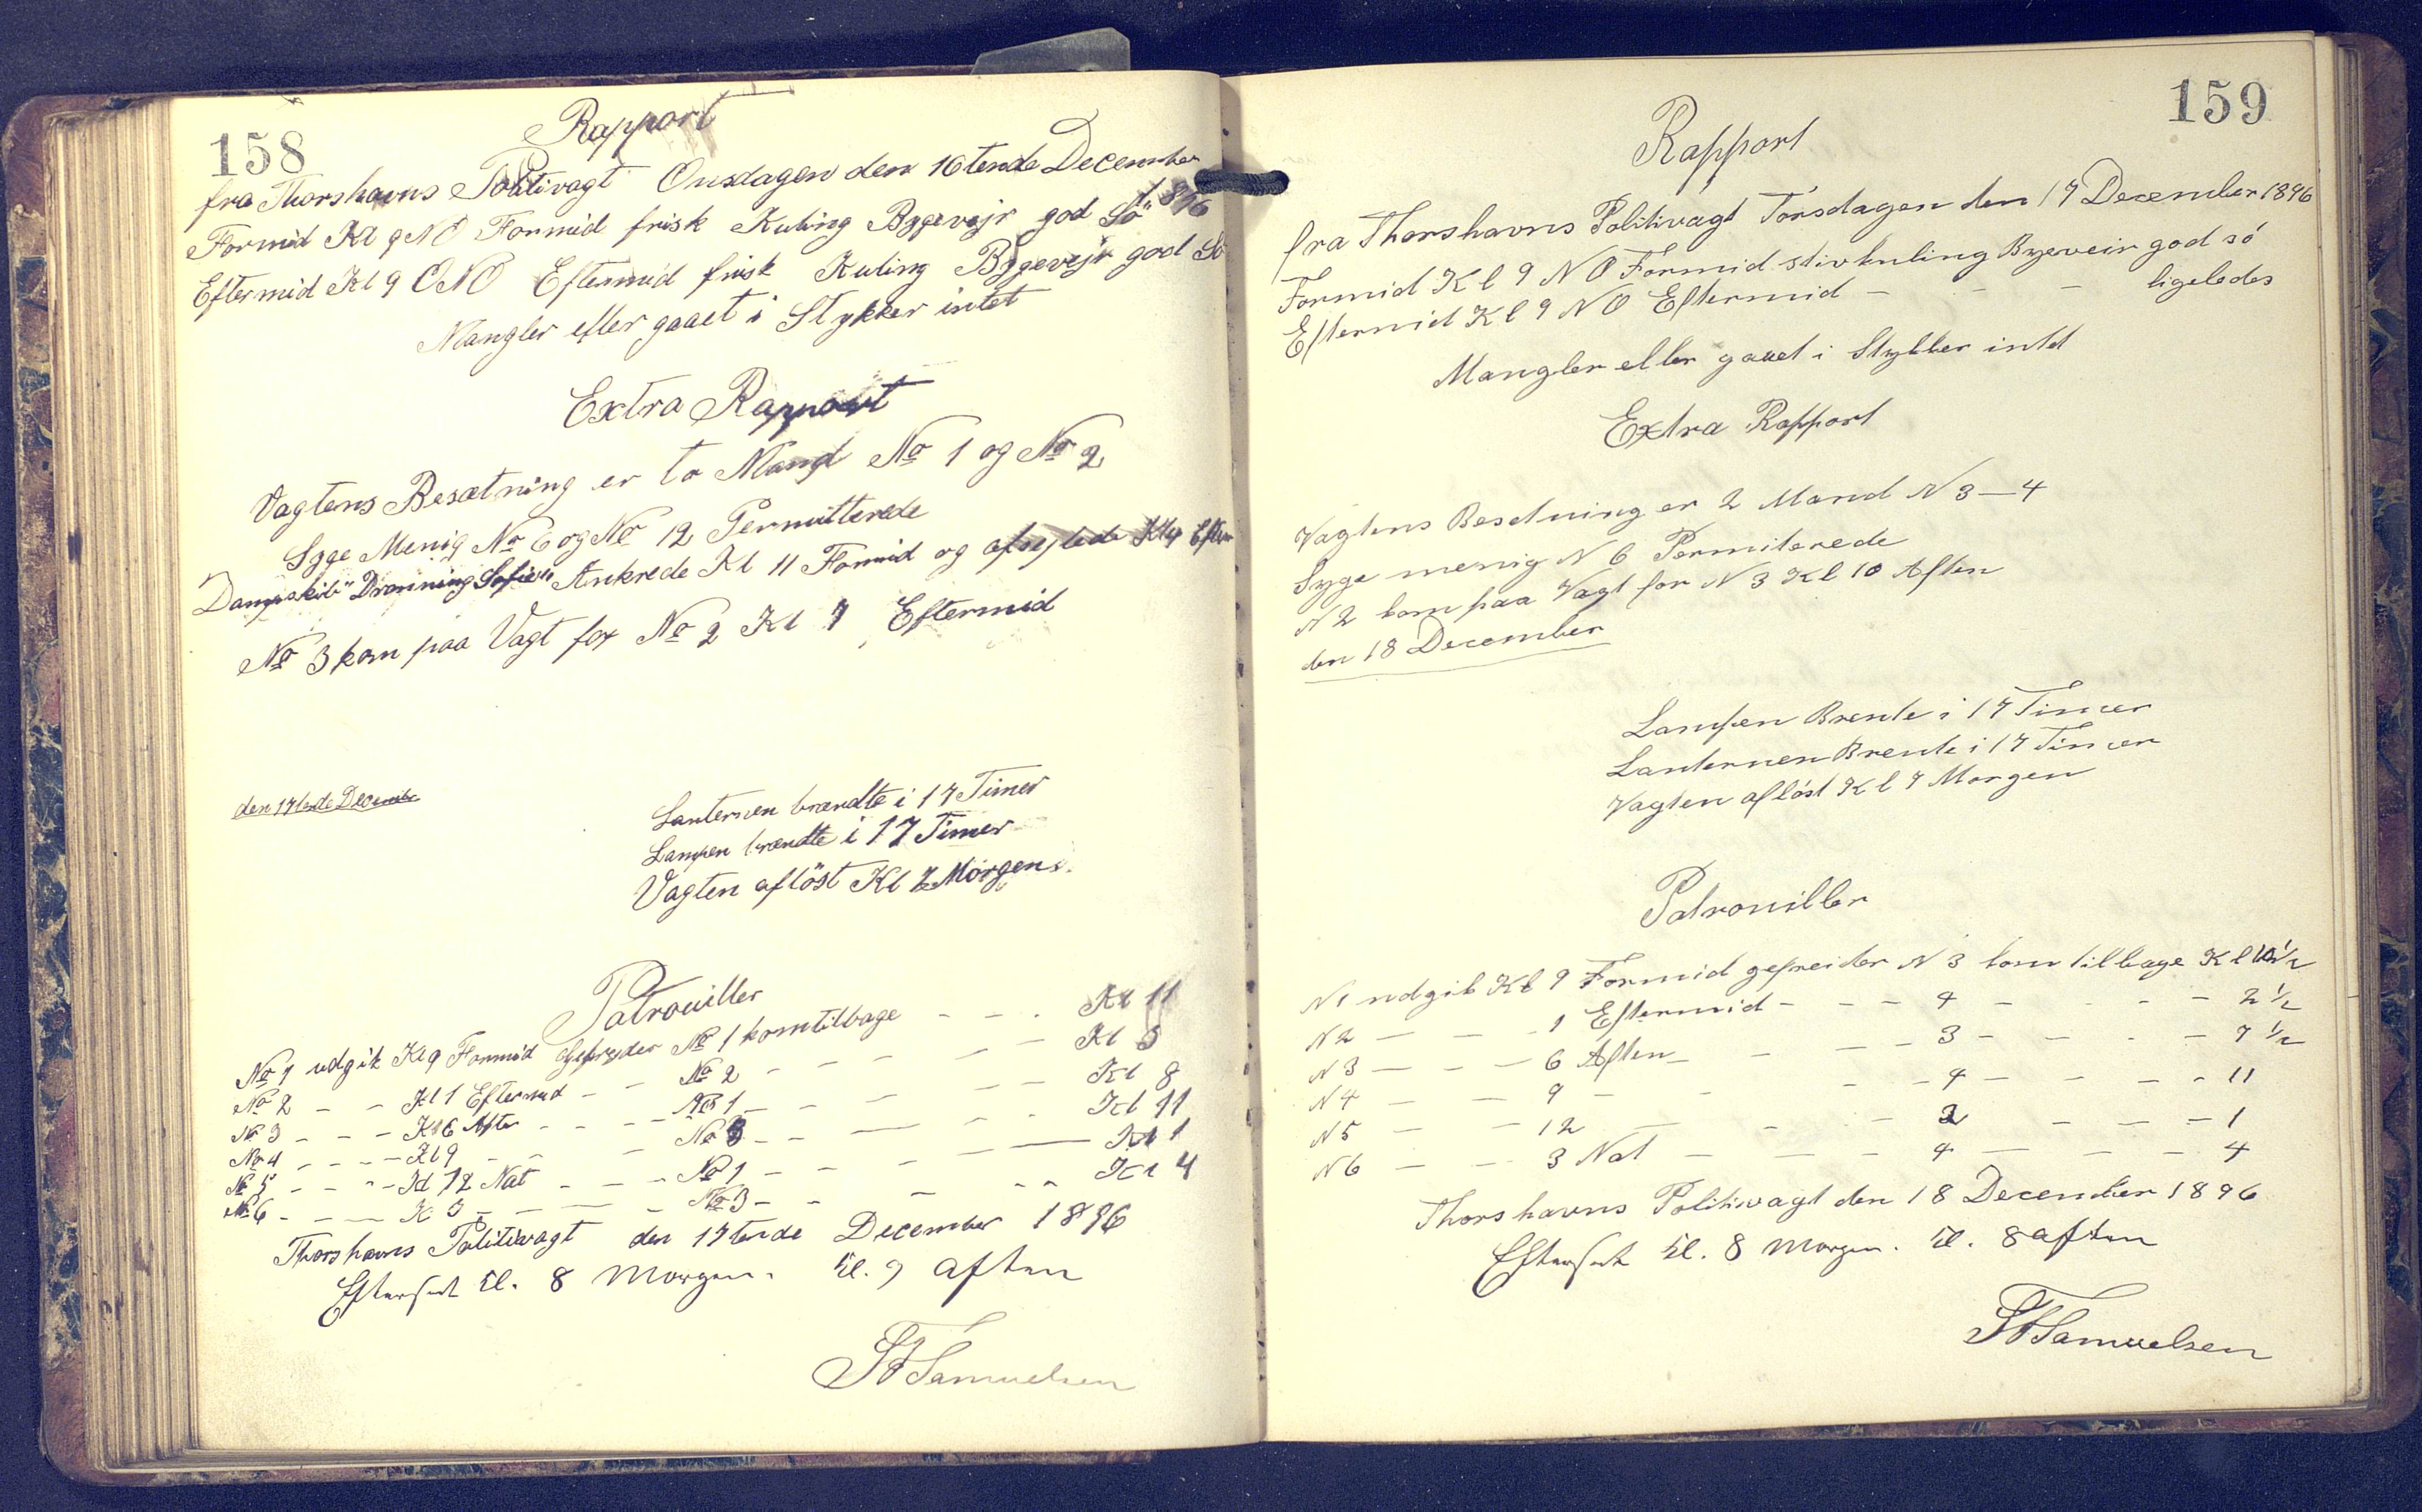 158
Rapport
fra Thorshavns Politivagt Onsdagen den 16tende December
1896
Formid Kl 9 NO Formid frisk Kuling Bygevejr god Sö
Eftermid Kl 9 ONO Eftermid frisk Kuling Bygevejr god Sö
Mangler eller gaaet i Stykker intet
Extra Rapport
Vagtens Besætning er to Mand No 1 og No 2
Syge Menig No 6 og No 12 Permitterede
Dampskib "Dronning Sofie" Ankrede Kl 11 Formid og afsejlede Kl Efter
No 3 kom paa Vagt for No 2 Kl 7 Eftermid
den 17tende December
Lanternen brændte i 17 Timer
Lampen brændte i 17 Timer
Vagten aflöst Kl 7 Morgen
Patrouiller
No 1 udgik Kl 9 Formid Gefreyder No 1 kom tilbage - - - Kl 11
No 2 - - Kl 1 Eftermid - - No 2 - - - - Kl 3
No 3 - - - Kl 6 Aften - - - No 1 - - - - - Kl 8
No 4 - - - - Kl 9 - - - No 3 - - - - - Kl 11
No 5 - - - - Kl 12 Nat - - - No 1 - - - - Kl 1
No 6 - - - - Kl 3 - - - - No 3 - - - - - Kl 4
Thorshavns Politivagt den 17tende December 1896
Efterset kl. 8 Morgen. kl. 9 aften
Samuelsen
159
Rapport
fra Thorshavns Politivagt Torsdagen den 17 December 1896
Formid Kl 9 NO Formid stivkuling Bygeveir god só
Eftermid Kl 9 NO Eftermid - - - ligeledes
Mangler eller gaaet i Stykker intet
Extra Rapport
Vagtens Besetning er 2 Mand N 3 - 4
Syge menig N 6 Permiterede
N 2 kom paa Vagt for N 3 Kl 10 Aften
den 18 December
Lampen Brente i 17 Timer
Lanternen Brente i 17 Timer
Vagten aflóst Kl 7 Morgen
Patrouiller
N 1 udgik Kl 9 Formid gefreider N 3 kom tilbage Kl 10 1/2
N 2 - - - 1 Eftermid - - - 4 - - - - 2 1/2
N 3 - - - 6 Aften - - - - 3 - - - - 7 1/2
N 4 - - 9 - - - - 4 - - - - 11
N 5 - - 12 - - - 2 - - - 1
N 6 - - 3 Nat - - - 4 - - - - 4
Thorshavns Politivagt den 18 December 1896
Efterset kl. 8 Morgen. kl. 8 aften
Samuelsen